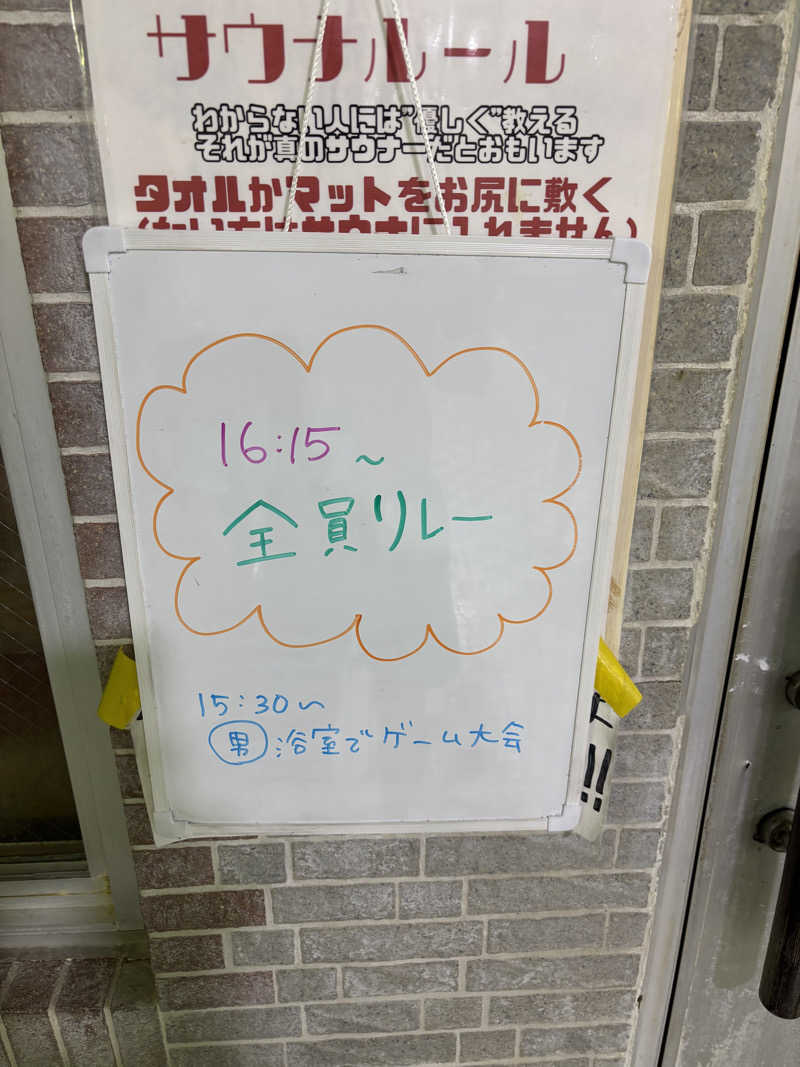 サウナルール
わからない人には"優しく"教える
それが真のサウナーだとおもいます
タオルかマットをお尻に敷く
16:15～
全員リレー
15:30～
男 浴室でゲーム大会
!!